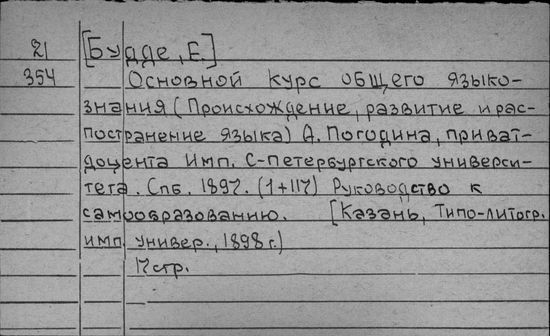 21 [Будде, Е.]
354 Основной курс общего языко-
знания (Происхождение, развитие и рас-
постранение языка) А. Погодина, приват-
доцента Имп. С-Петербургского универси-
тета. Спб. 1897. (1+117) Руководство к
самообразованию. [Казань, Типо-литогр.
имп. универ., 1898 г.)
17 стр.